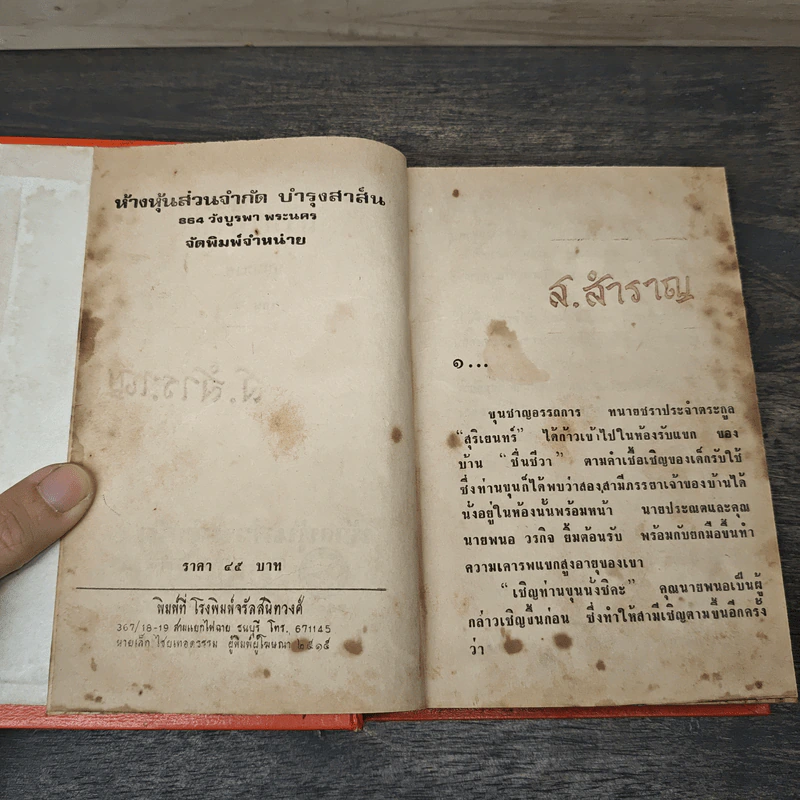 ห้างหุ้นส่วนจำกัด บำรุงสาส์น
864 วังบูรพา พระนคร
จัดพิมพ์จำหน่าย
ราคา ๔๕ บาท
พิมพ์ที่ โรงพิมพ์จรัลสนิทวงศ์
367/18-19 สามแยกไฟฉาย ธนบุรี โทร. 671145
นายเล็ก ไชยเทอดธรรม ผู้พิมพ์ผู้โฆษณา ๒๕๑๕
ส. สำราญ
๑...
ขุนชาญอรรถการ ทนายชราประจำตระกูล
“สุริเยนทร์” ได้ก้าวเข้าไปในห้องรับแขก ของ
บ้าน “ชื่นชีวา” ตามคำเชื้อเชิญของเด็กรับใช้
ซึ่งท่านขุนก็ได้พบว่าสองสามีภรรยาเจ้าของบ้านได้
นั่งอยู่ในห้องนั้นพร้อมหน้า นายประณตและคุณ
นายพนอ วรกิจ ยิ้มต้อนรับ พร้อมกับยกมือขึ้นทำ
ความเคารพแขกสูงอายุของเขา
“เชิญท่านขุนนั่งซิคะ” คุณนายพนอเป็นผู้
กล่าวเชิญขึ้นก่อน ซึ่งทำให้สามีเชิญตามขึ้นอีกครั้ง
ว่า